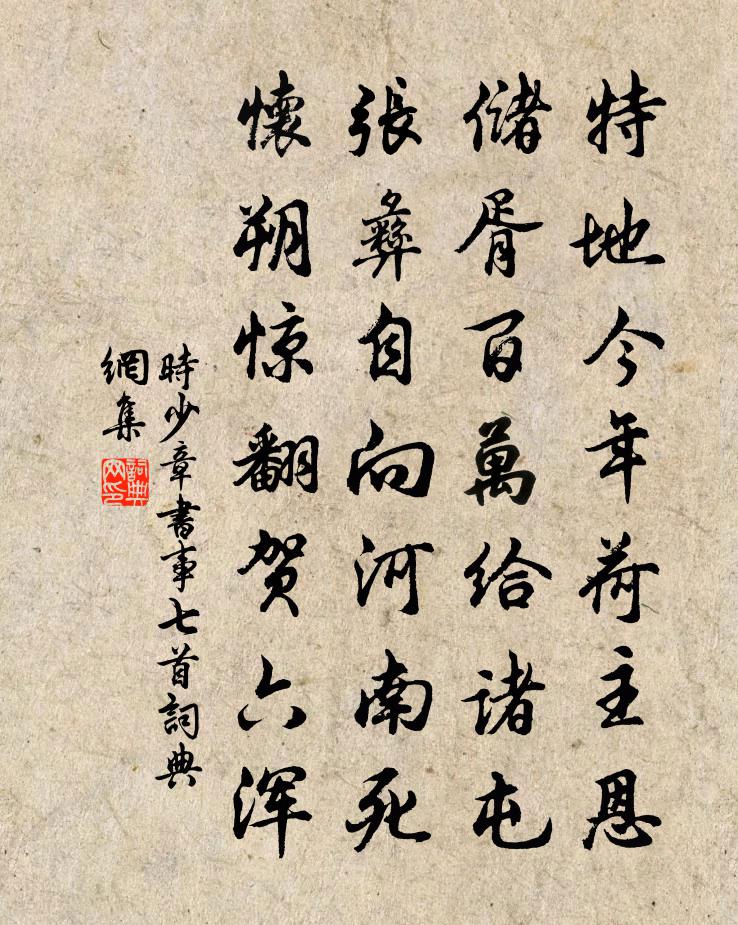 特地今年荷主恩
儲胥百萬給諸屯
張彝自向河南死
懷朔惊翻贺六浑
時少章書事七首詞典
網集
詞典網印